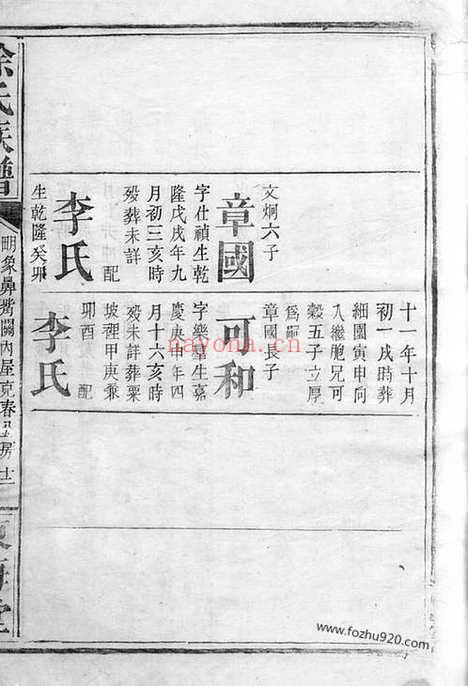 文炯六子
章國
字仕禎生乾
隆戊戌年九
月初三亥時
歿葬未詳
配
李氏
生乾隆癸丑
十一年十月
初一戌時葬
細園寅申向
入繼胞兄可
穀五子立厚
為嗣
章國長子
可和
字樂羣生嘉
慶庚申年四
月十六亥時
歿未詳葬栗
坡裡甲庚兼
卯酉
配
李氏
徐氏族譜
明象鼻嘴關內屋克春公房
東海堂
nayona.cn
www.fozhu920.com